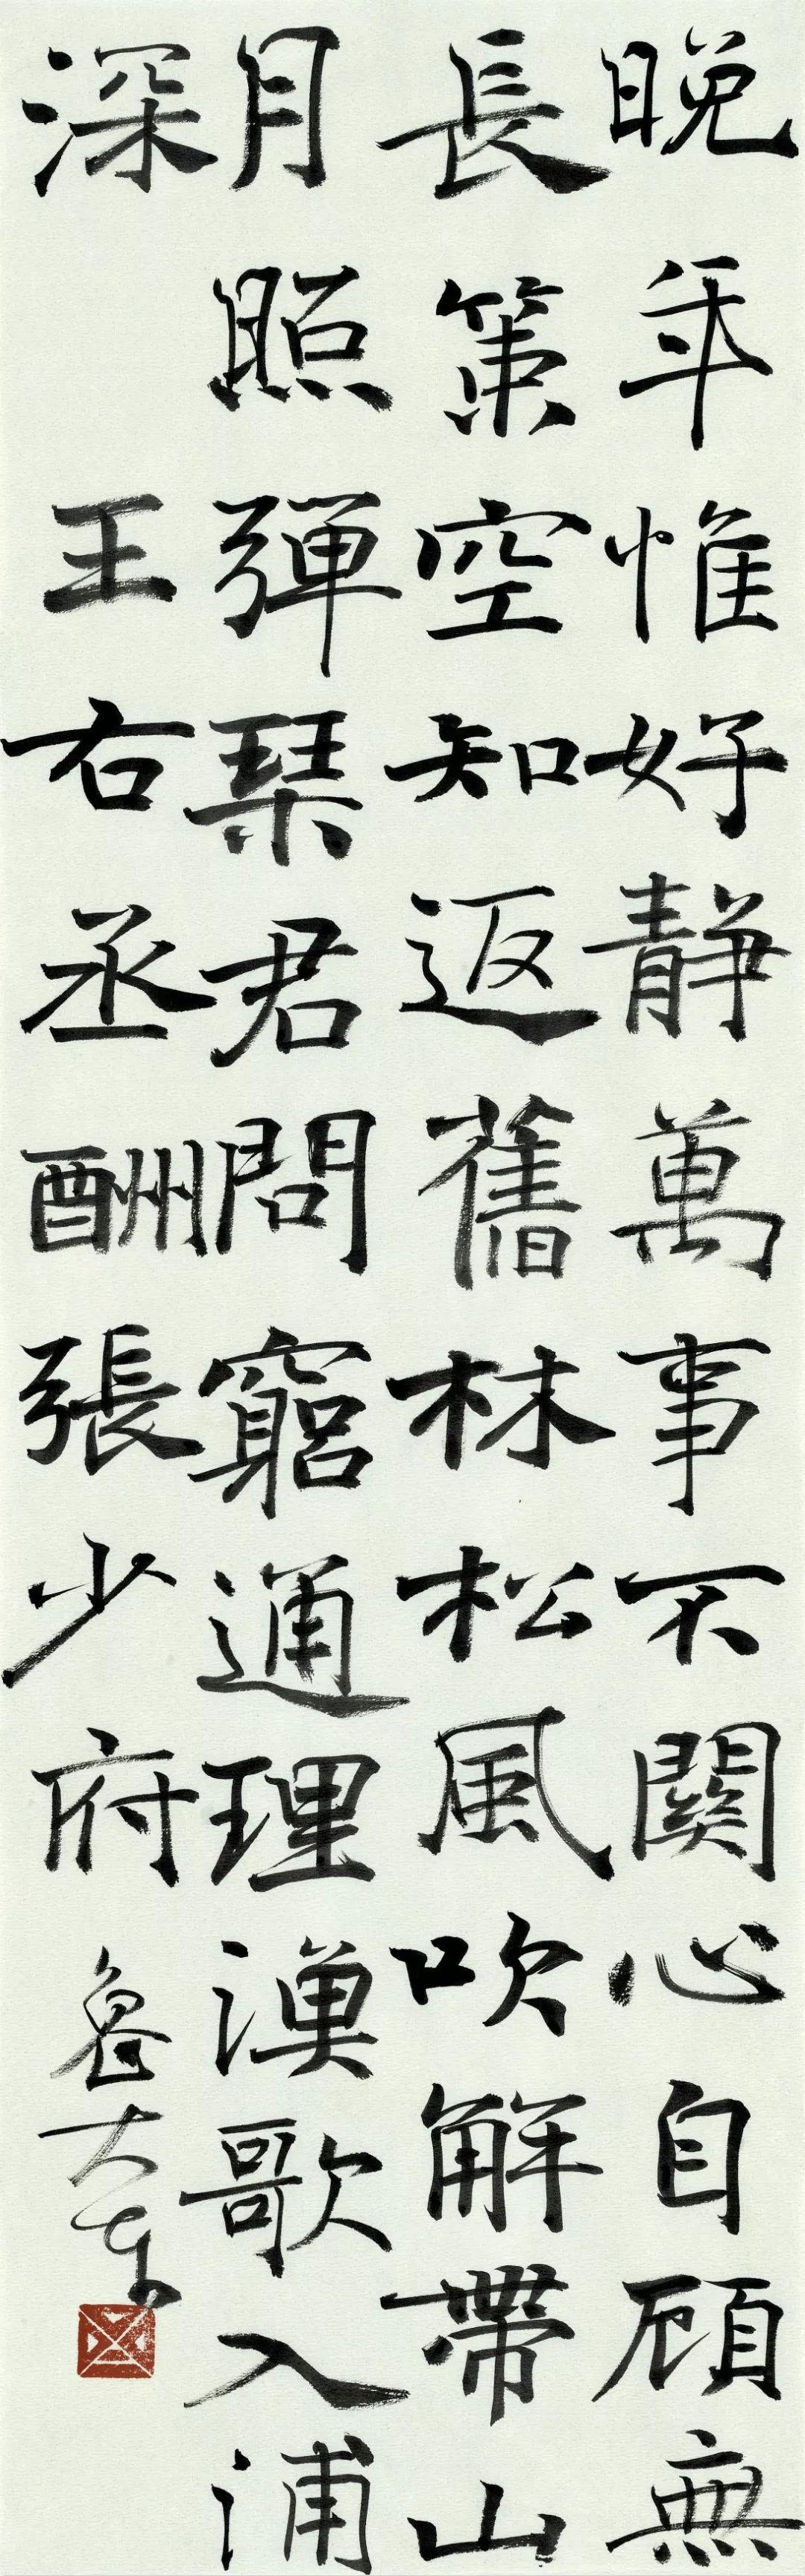 晚年惟好靜萬事不關心自顧無
長策空知返舊林松風吹解帶山
月照彈琹君問窮通理漁歌入浦
深
王右丞酬張少府
魯大東